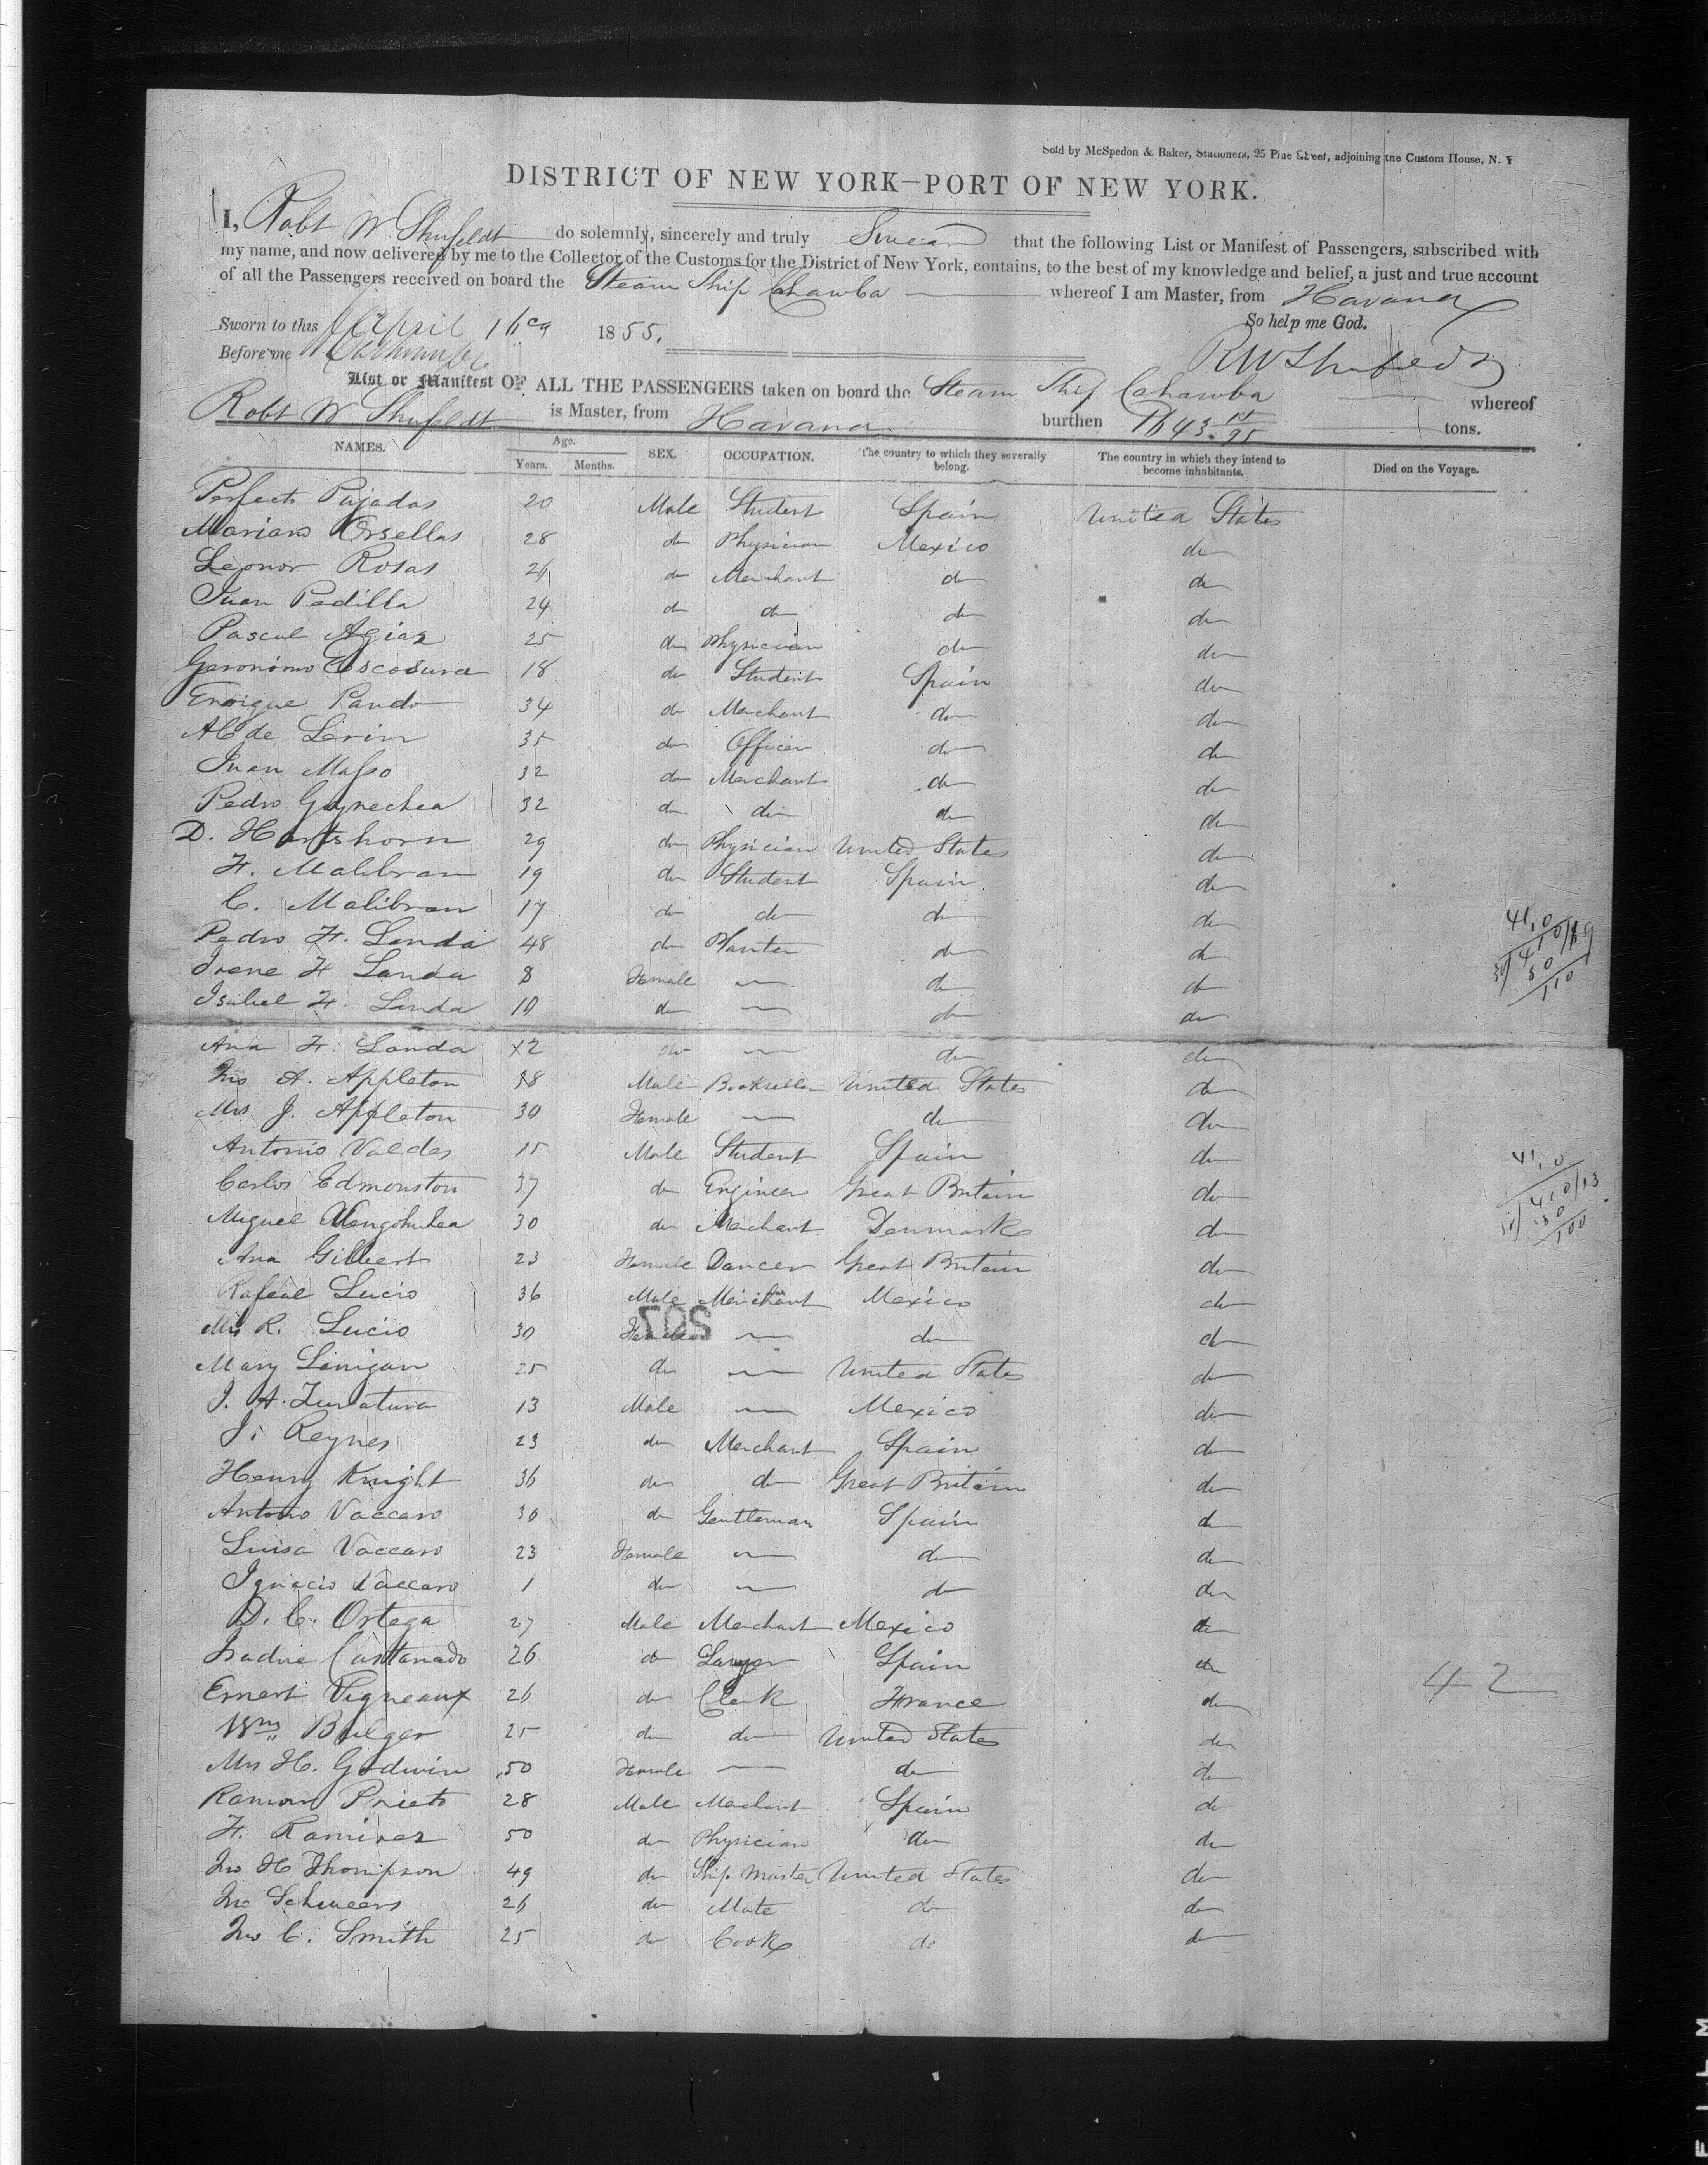 Sold by McSpedon & Baker, Stationers, 25 Pine Street, adjoining the Custom House, N. Y
DISTRICT OF NEW YORK—PORT OF NEW YORK.
I, Robt W Shufeldt do solemnly, sincerely and truly Swear that the following List or Manifest of Passengers, subscribed with
my name, and now delivered by me to the Collector of the Customs for the District of New York, contains, to the best of my knowledge and belief, a just and true account
of all the Passengers received on board the Steam Ship Cahawba whereof I am Master, from Havana
Sworn to this April 1855. So help me God.
Before me RW Shufeldt
List or Manifest OF ALL THE PASSENGERS taken on board the Steam Ship Cahawba whereof
Robt W. Shufeldt is Master, from Havana burthen 1643 tons.
NAMES. Age. Years. Months. SEX. OCCUPATION. The country to which they severally belong. The country in which they intend to become inhabitants. Died on the Voyage.
Perfecto Pujadas 20 Male Student Spain United States
Mariano Orsellas 28 do Physician Mexico do
Leonor Rosas 26 do Merchant do do
Juan Padilla 24 do do do do
Pascul Agiar 25 do Physician do do
Geronimo Escosura 18 do Student Spain do
Enrique Pando 34 do Merchant do do
de Lerin 35 do Officer do do
Juan Masso 32 do Merchant do do
Pedro Goynechea 32 do do do do
D. Hartshorn 29 do Physician United States do
F. Malibran 19 do Student Spain do
C. Malibran 17 do do do do
Pedro F. Landa 48 do Planter do do
Irene F Landa 8 Female — do do
Isabel F. Landa 10 do — do do
Ana F. Landa 12 do — do do
Jno A. Appleton 38 Male Bookseller United States do
Mrs J. Appleton 30 Female — do do
Antonio Valdes 15 Male Student Spain do
Carlos Edmonston 37 do Engineer Great Britain do
Miguel 30 do Merchant Denmark do
Ana Gilbert 23 Female Dancer Great Britain do
Rafeal Lucio 36 Male Merchant Mexico do
Mrs R. Lucio 30 Female — do do
Mary Lanigan 25 do — United States do
J. A. 13 Male — Mexico do
J. Reynes 23 do Merchant Spain do
Henry Knight 36 do do Great Britain do
Antonio Vaccaro 30 do Gentleman Spain do
Luisa Vaccaro 23 Female — do do
Ignacio Vaccaro 1 do — do do
D. C. Ortega 27 Male Merchant Mexico do
Castanado 26 do Lawyer Spain do
Ernest Vigneaux 26 do Clerk France do
Wm Bulger 25 do do United States do
Mrs H. Godwin 50 Female — do do
Ramon Prieto 28 Male Merchant Spain do
F. Ramirez 50 do Physician do do
Jno H Thompson 49 do Ship Master United States do
Jno Schweers 26 do Mate do do
Jno C. Smith 25 do Cook do do
42